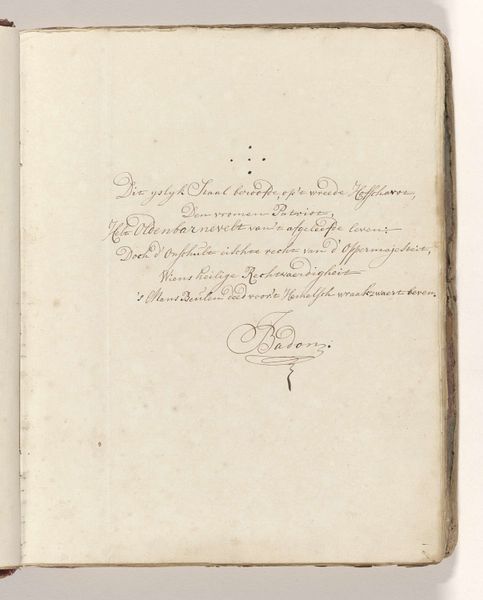 Dit yslyk Staal beroofde, op't wreede Hofschavot,
Den vromen Patriot,
Held Oldenbarnevelt van't afgeleefde leven:
Doch d'Onschult eischte recht van d'Oppermajesteit,
Wiens heilige Rechtvaerdigheit
's Mans Beulen deed voor't Hemelsch wraakzwaert beven.
Badon: